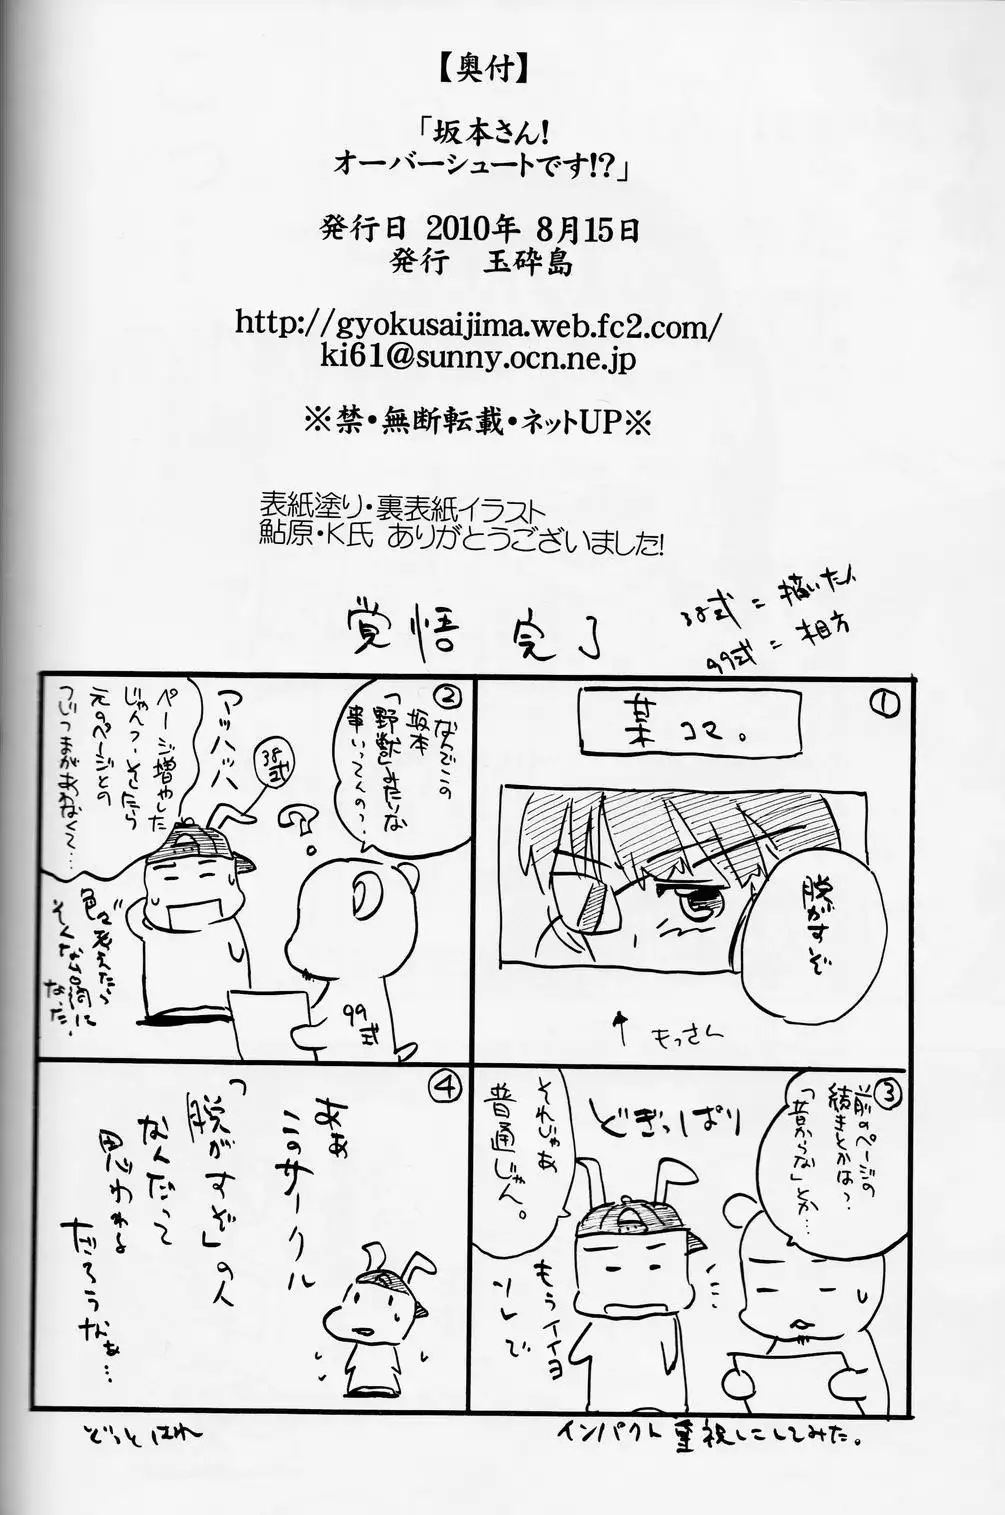 【奥付】
「坂本さん!
オーバーシュートです!?」
発行日 2010年 8月15日
発行　玉砕島
http://gyokusaijima.web.fc2.com/
ki61@sunny.ocn.ne.jp
※禁・無断転載・ネットUP※
表紙塗り・裏表紙イラスト
鮎原・K氏 ありがとうございました!
覚悟 完了
38式=描いた人
99式=相方
①
某コマ。
脱がすぞ
もっさん
②
なんでこの
坂本
「野獣」みたいな
事いってんの?
?
38式
アッハッハ
ページ増やした
じゃんかーそしたら
元のページとの
つじつまがあわなくて…
色々考えたら
そんな台詞に
なった。
99式
③
前のページの
続きとかは?
「昔からな」とか…
どぎっぱり
それじゃあ
普通じゃん。
もうイイヨ
ソレで
④
ああ
このサークル
「脱がすぞ」の人
なんだって
思われる
だろうなぁ…
インパクト重視にしてみた。
どっとはれ